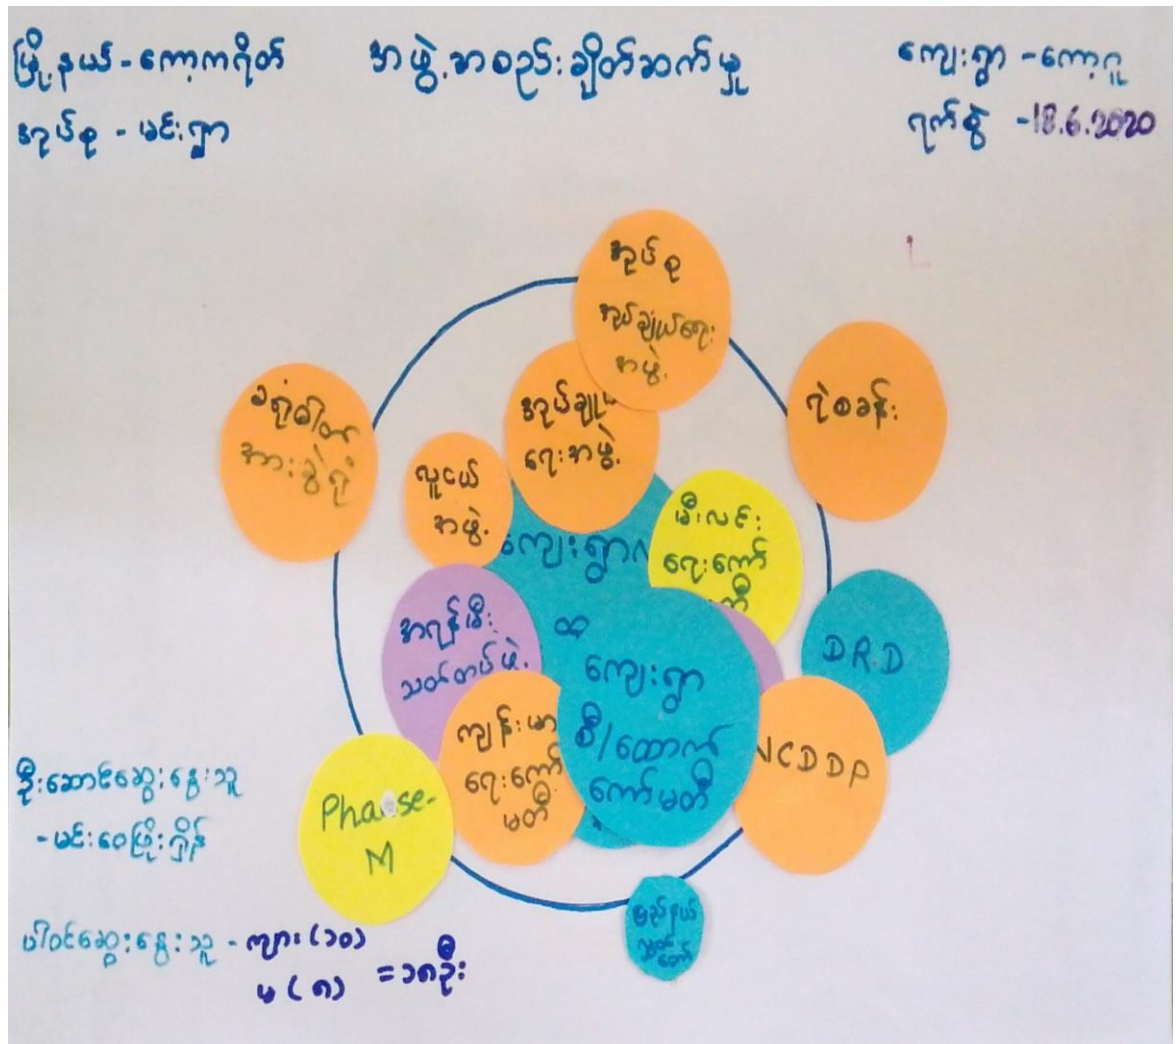 မြို့နယ် - ကော့ကရိတ်
အုပ်စု - မင်းရွာ
အဖွဲ့အစည်းချိတ်ဆက်မှု
ကျေးရွာ - ကော့ဂူ
ရက်စွဲ - 18.6.2020
အုပ်စု
အုပ်ချုပ်ရေး
အဖွဲ့
ရဲစခန်း
အုပ်ချု
ရေးအဖွဲ့
လူငယ်
အဖွဲ့
မီးလင်း
ရေးကော်
တီ
ကျေးရွာ
အရန်မီး
သတ်တပ်ဖွဲ့
ထ
ကျေးရွာ
စီ/ထောက်
ကော်မတီ
DRD
ကျန်းမာ
ရေးကော်
မတီ
NCDDP
Phase-
M
ပြည်နယ်
လွှတ်
တော်
ဦးဆောင်ဆွေးနွေးသူ
- မင်းဝေဖြိုးရှိန်
ပါဝင်ဆွေးနွေးသူ - ကျား (၁၀)
မ (၈) = ၁၈ဦး